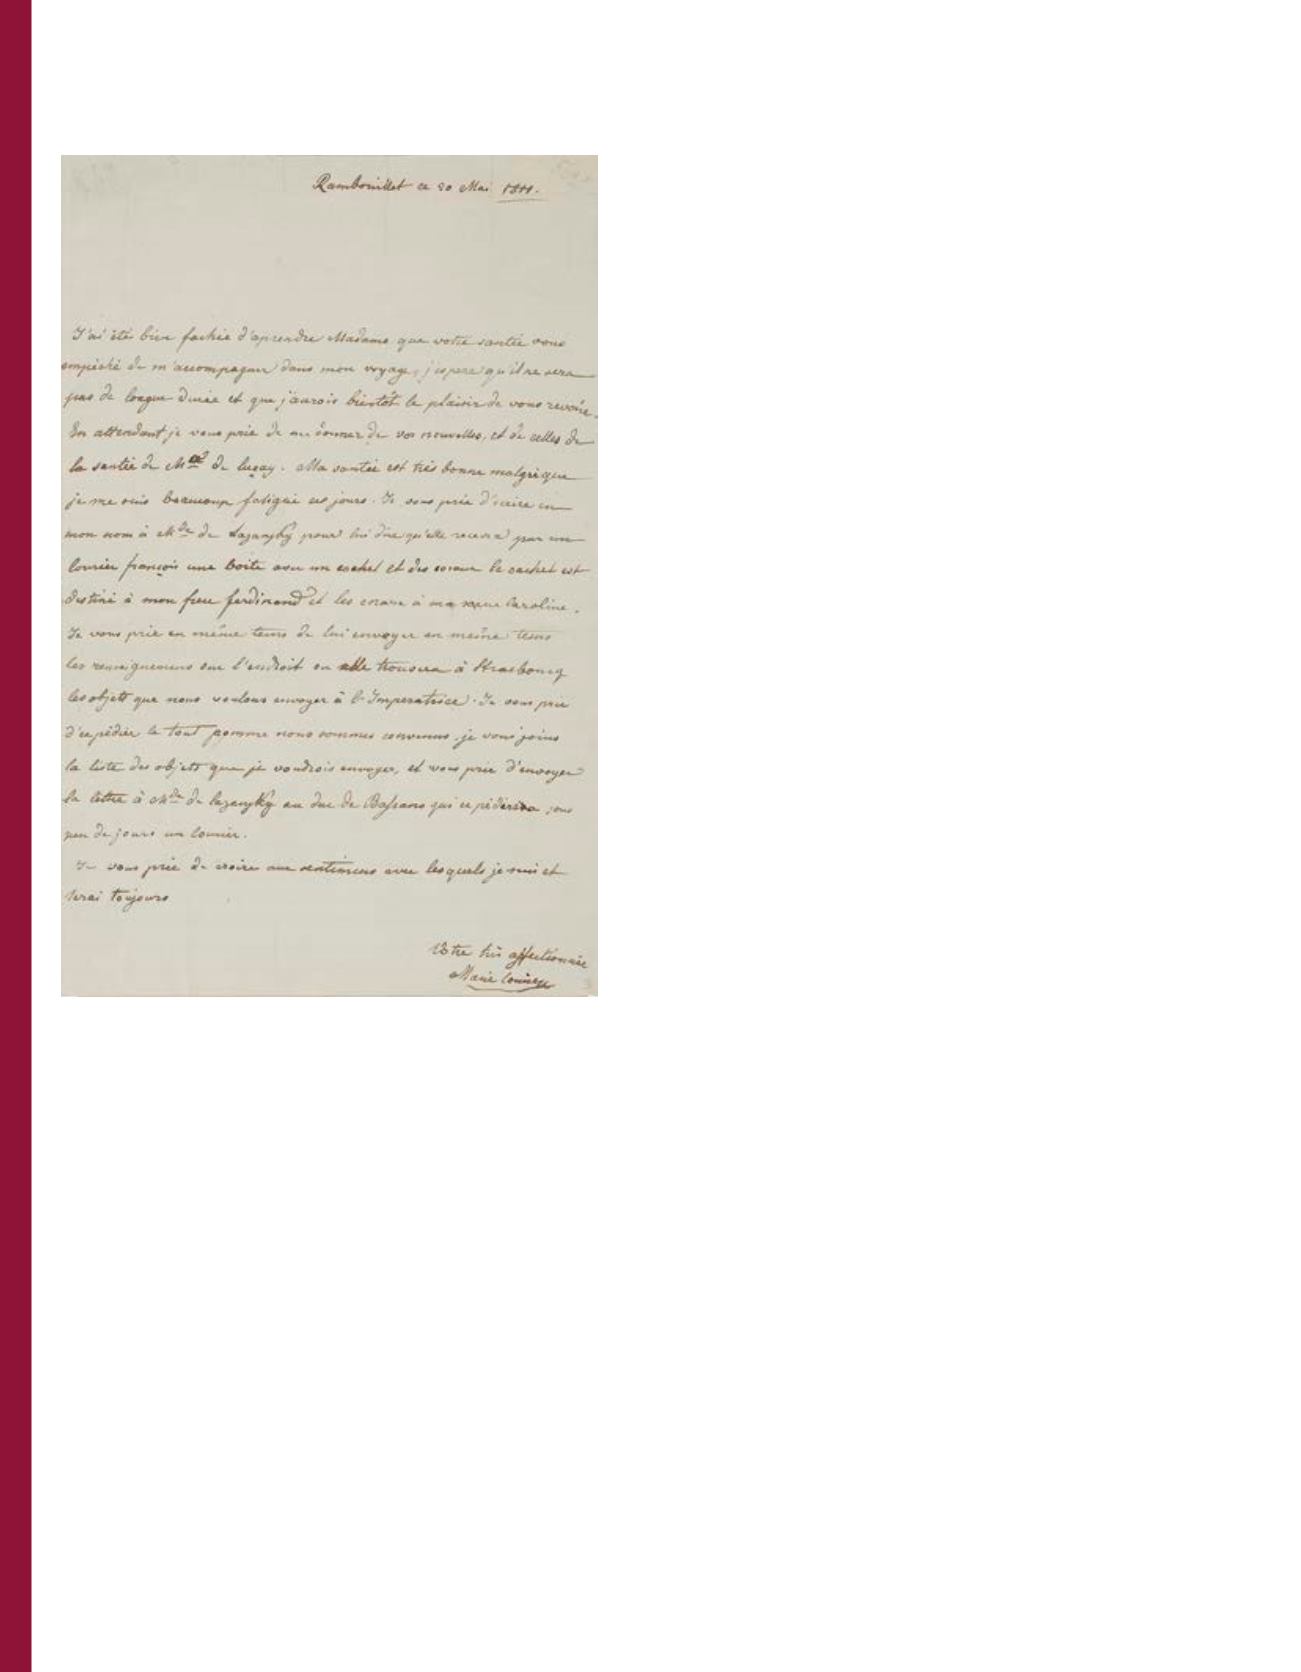 Rambouillet ce 20 Mai 1811.
J'ai été bien fachée d'aprendre Madame que votre santée vous
empéché de m'accompagner dans mon voyage, j'espere qu'il ne sera
pas de longue durée et que j'aurois bientôt le plaisir de vous revoir.
En attendant je vous prie de me donner de vos nouvelles, et de celles de
la santée de Mde de luçay. Ma santée est très bonne malgré que
je me suis beaucoup fatigué ces jours. Je vous prie d'écrire en
mon nom à Mde de Lazansky pour lui dire qu'elle recevra par un
Courier françois une boite avec un cachet et des coraux le cachet est
destiné à mon frere ferdinand et les coraux à ma soeur Caroline.
Je vous prie en même tems de lui envoyer en même tems
les renseignemens sur l'endroit ou elle trouvera à Strasbourg
les objets que nous voulons envoyer à l'Imperatrice. Je vous prie
d'expédier le tout comme nous sommes convenus, je vous joins
la liste des objets que je voudrois envoyer, et vous prie d'envoyer
la lettre à Mde de lazansky au duc de Bassano qui expédiera sous
peu de jours un Courier.
Je vous prie de croire aux sentimens avec lesquels je suis et
serai toujours
Votre très affectionnée
Marie Louise